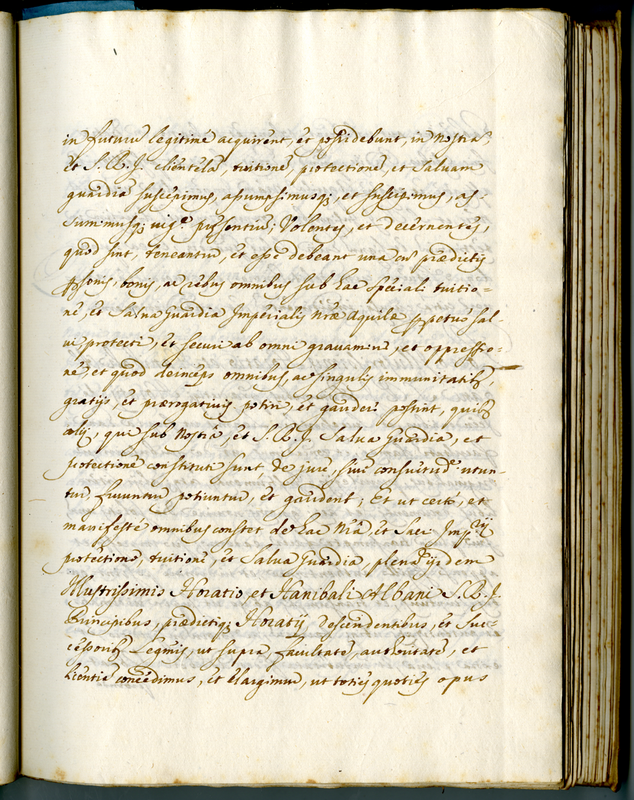 in futurũ legitimè acquirent, et possidebunt, in Nostrã,
et S. R. I. clientelã, tuitionẽ, protectionẽ, et Saluam
guardiã suscepimus, assumpsimusq; et suscipimus, as-
sumimusq; uigẽ pr̃sentiũ; Volentes, et decernentes,
quod sint, teneantur, et esse debeant una cũ prædictis
p̃sonis, bonis, ac rebus omnibus sub hac speciali tuitio-
ne, et Salua Guardia Imperialis nr̃æ Aquilæ p̃petuò sal-
ui protecti, et securi ab omni grauamine, et oppressio-
ne et quod deinceps omnibus, ac singulis immunitatib9
gratijs, et prærogatiuis potiri, et gaudere possint, quib9
alij, qui sub Nostrã, et S. R. I. Salua Guardia, et
protectione constituti sunt de jure, siue consuetudẽ utun-
tur fruuntur potiuntur, et gaudent; Et ut certè, et
manifestè omnibus constet de hac Nr̃ã et Sac: Imp.rij
protectione, tuitione, et Salua Guardia, plenẽ ijsdem
Illustrissimis Horatio, et Hanibali Albani S. R. I.
Principibus, prædictiq; Horatij descendentibus, et Suc-
cessorib9 Legmis, ut supra facultatẽ, authoritatẽ, et
licentiã concedimus, et elargimur, ut toties quoties opus